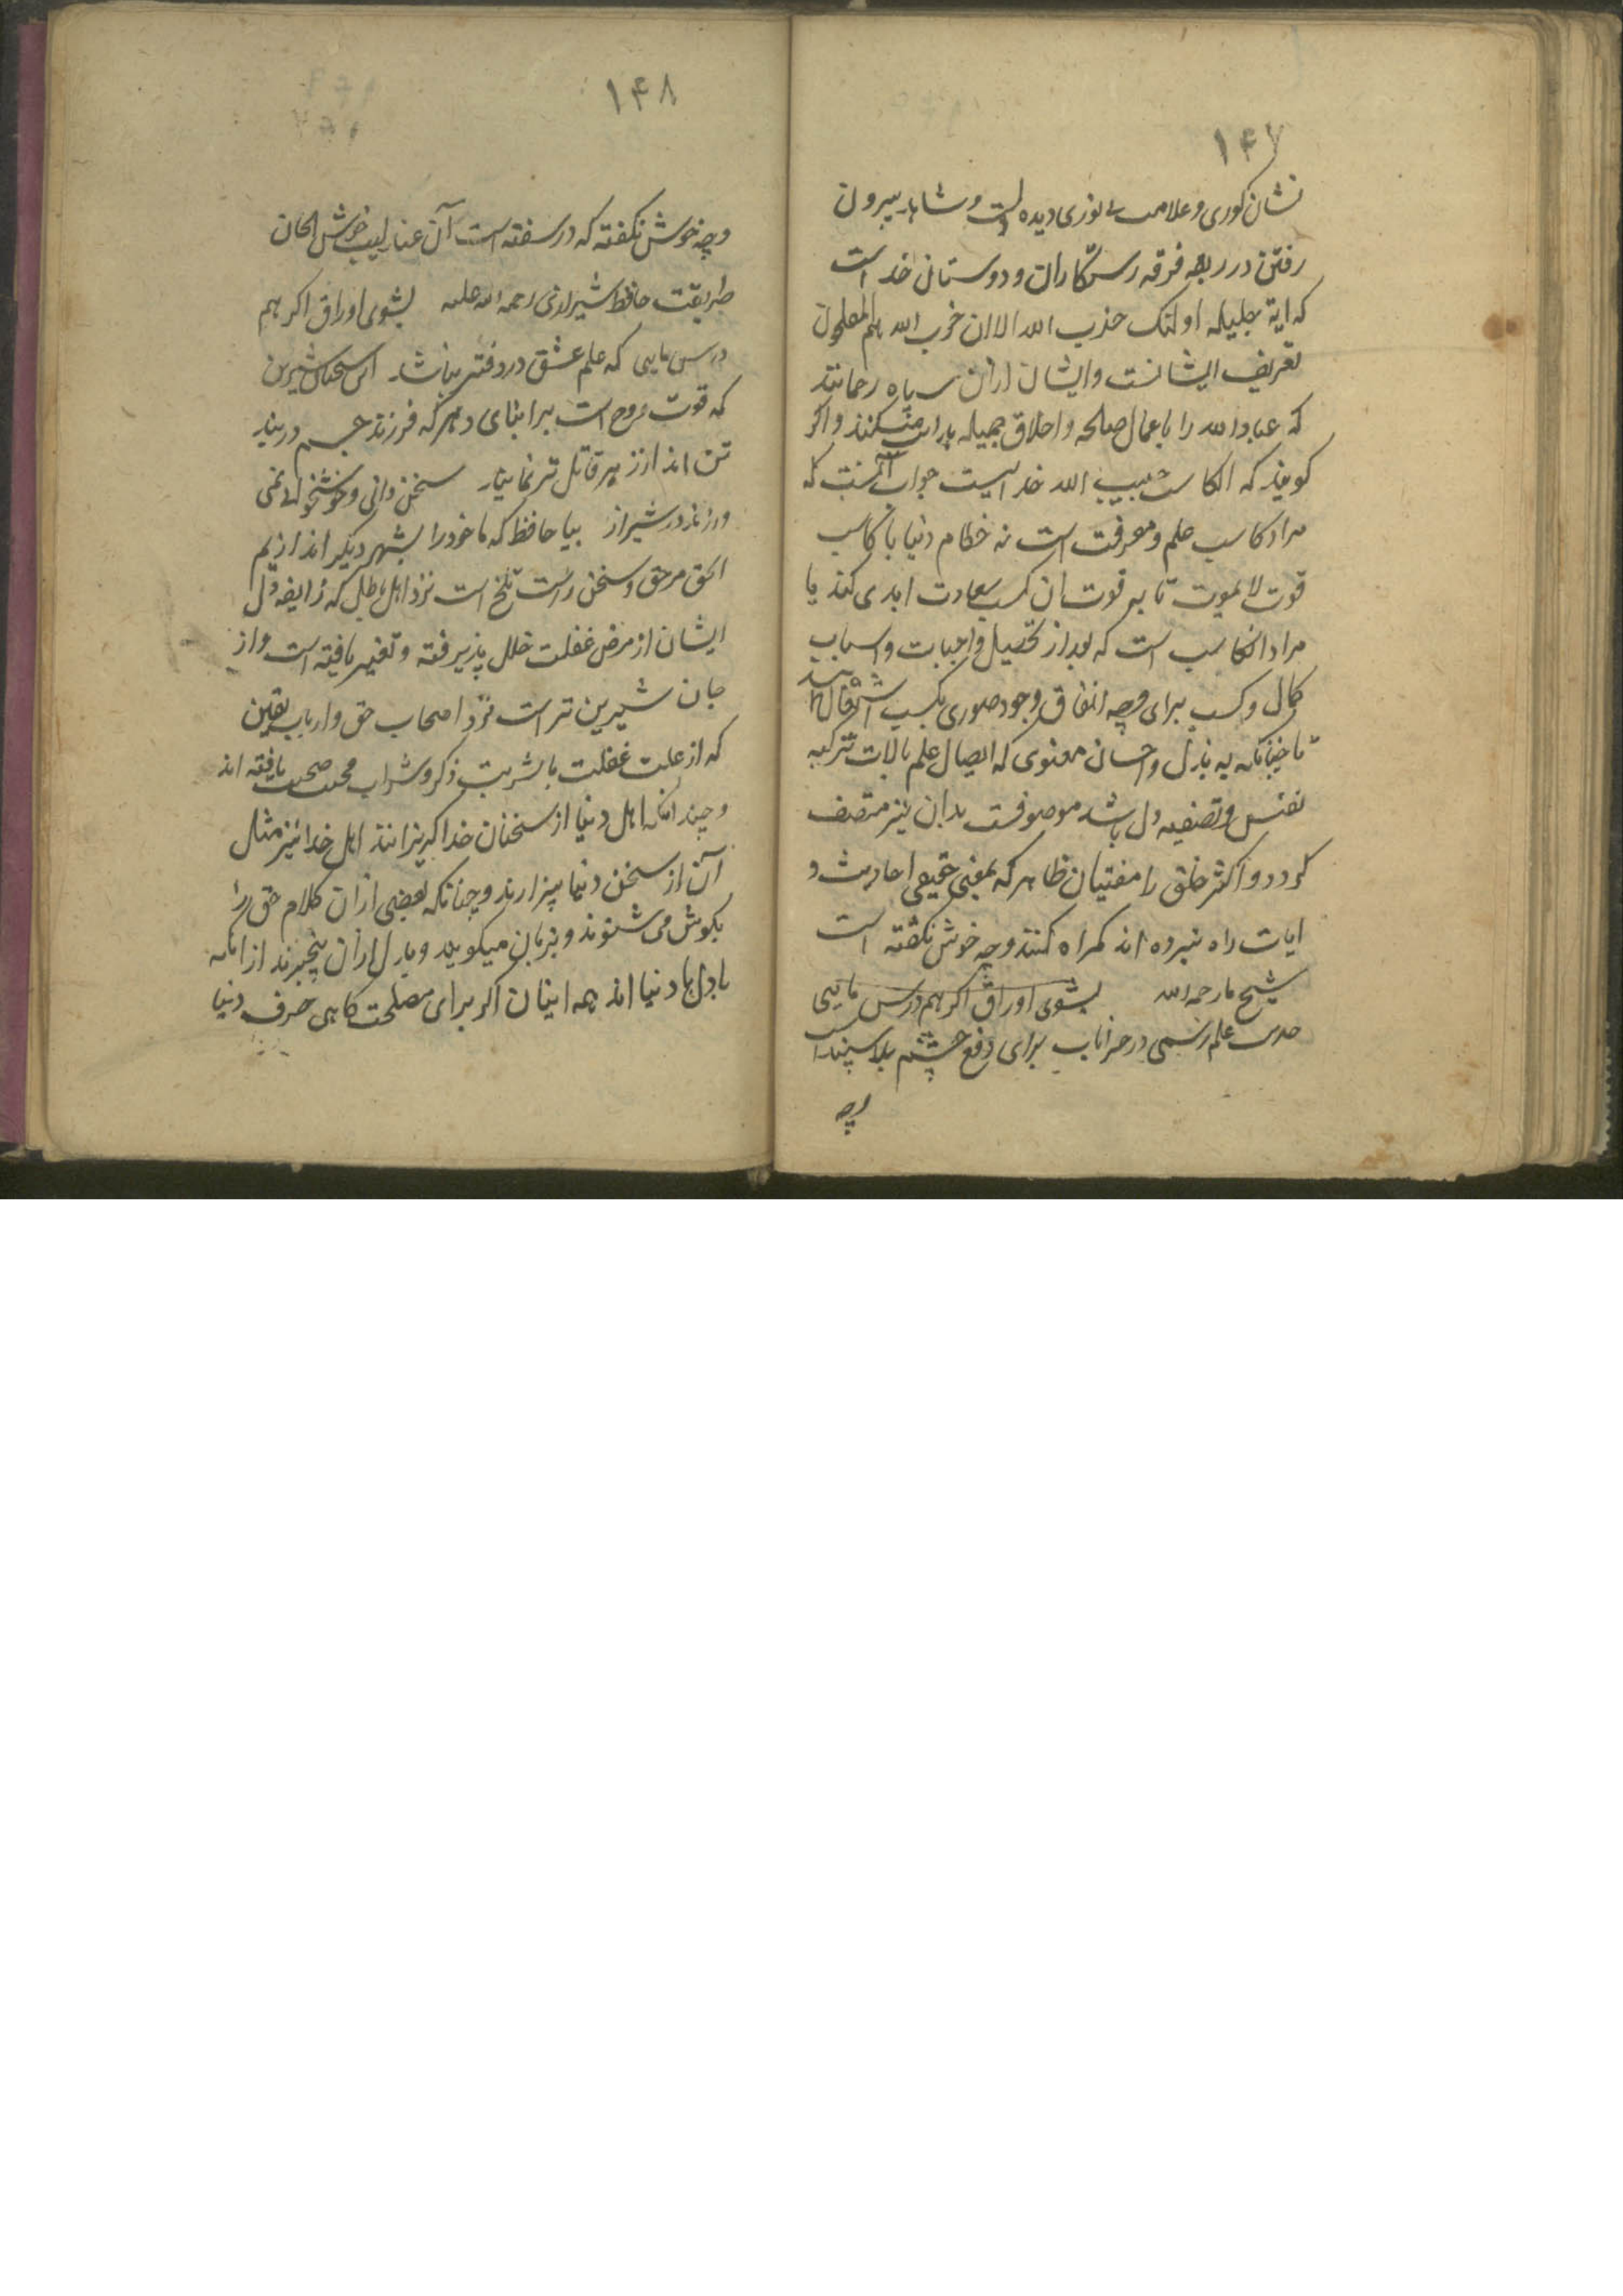 ۱۴۷
نشان کوری و علامت بی نوری دیده است و شاهد بیرون
رفتن در ربقه فرقه رستکاران و دوستان خداست
که ایة جلیله اولئک حذب الله الا ان حزب الله هم المفلحون
تعریف ایشانست و ایشان ازان سپاه رحمانند
که عباد الله را باعمال صالحه و اخلاق جمیله میکنند و اکر
کویند که الکاسب حبیب الله خداست جواب آنست که
مراد کاسب علم و معرفت است نه حطام دنیا یا کاسب
قوت لایموت تا به قوت ان کسب سعادت ابدی کند یا
مراد الکاسب است که بعد از تحصیل واجبات و اسباب
کمال و کسب برای وجه انفاق وجود صوری بکسب اشتغال
تا چنانکه به بذل و احسان معنوی که ایصال علم بالات تزکیه
نفس و تصفیه دل باشد موصوفست بدان نیز متصف
کردد و اکثر خلق را مفتیان ظاهر که بمعنی حقیقی احادیث و
ایات راه نبرده اند کمراه کنند و چه خوش نکفته است
شیخ ما رحمه الله بشوی اوراق اکر هم درس مایی
علم رسمی در خرابات برای دفع چشم بد
وچه
۱۴۸
وچه خوش نکفته که در سفته است آن عندلیب خوش الحان
طریقت حافظ شیرازی رحمه الله علیه بشوی اوراق اکر هم
درس مایی که علم عشق در دفتر نباشد این سخنان شیرین
که قوت روح است بر ابنای دهر که فرزند جسم و دربند
تن اند از زهر قاتل تر نماید سخن دانی و خوشخوانی نمی
ورزند در شیراز بیا حافظ که ما خود را بشهر دیکر اندازیم
الحق مر حق و سخن راست تلخ است نزد اهل باطل که ذایقه دل
ایشان از مرض غفلت خلل پذیرفته و تغییر یافته است و از
جان شیرین تر است نزد اصحاب حق و ارباب یقین
که از علت غفلت با شربت ذکر و شراب محبت صحت یافته اند
و چندانکه اهل دنیا از سخنان خدا کریزانند اهل خدا نیز مثل
آن از سخن دنیا بیزارند و چنانکه بعضی ازان کلام حق را
بکوش می شنوند و بزبان میکویند و بدل ازان بیخبرند از انکه
بادل با دنیا اند همه اینان اکر برای مصلحت کاهی حرف دنیا